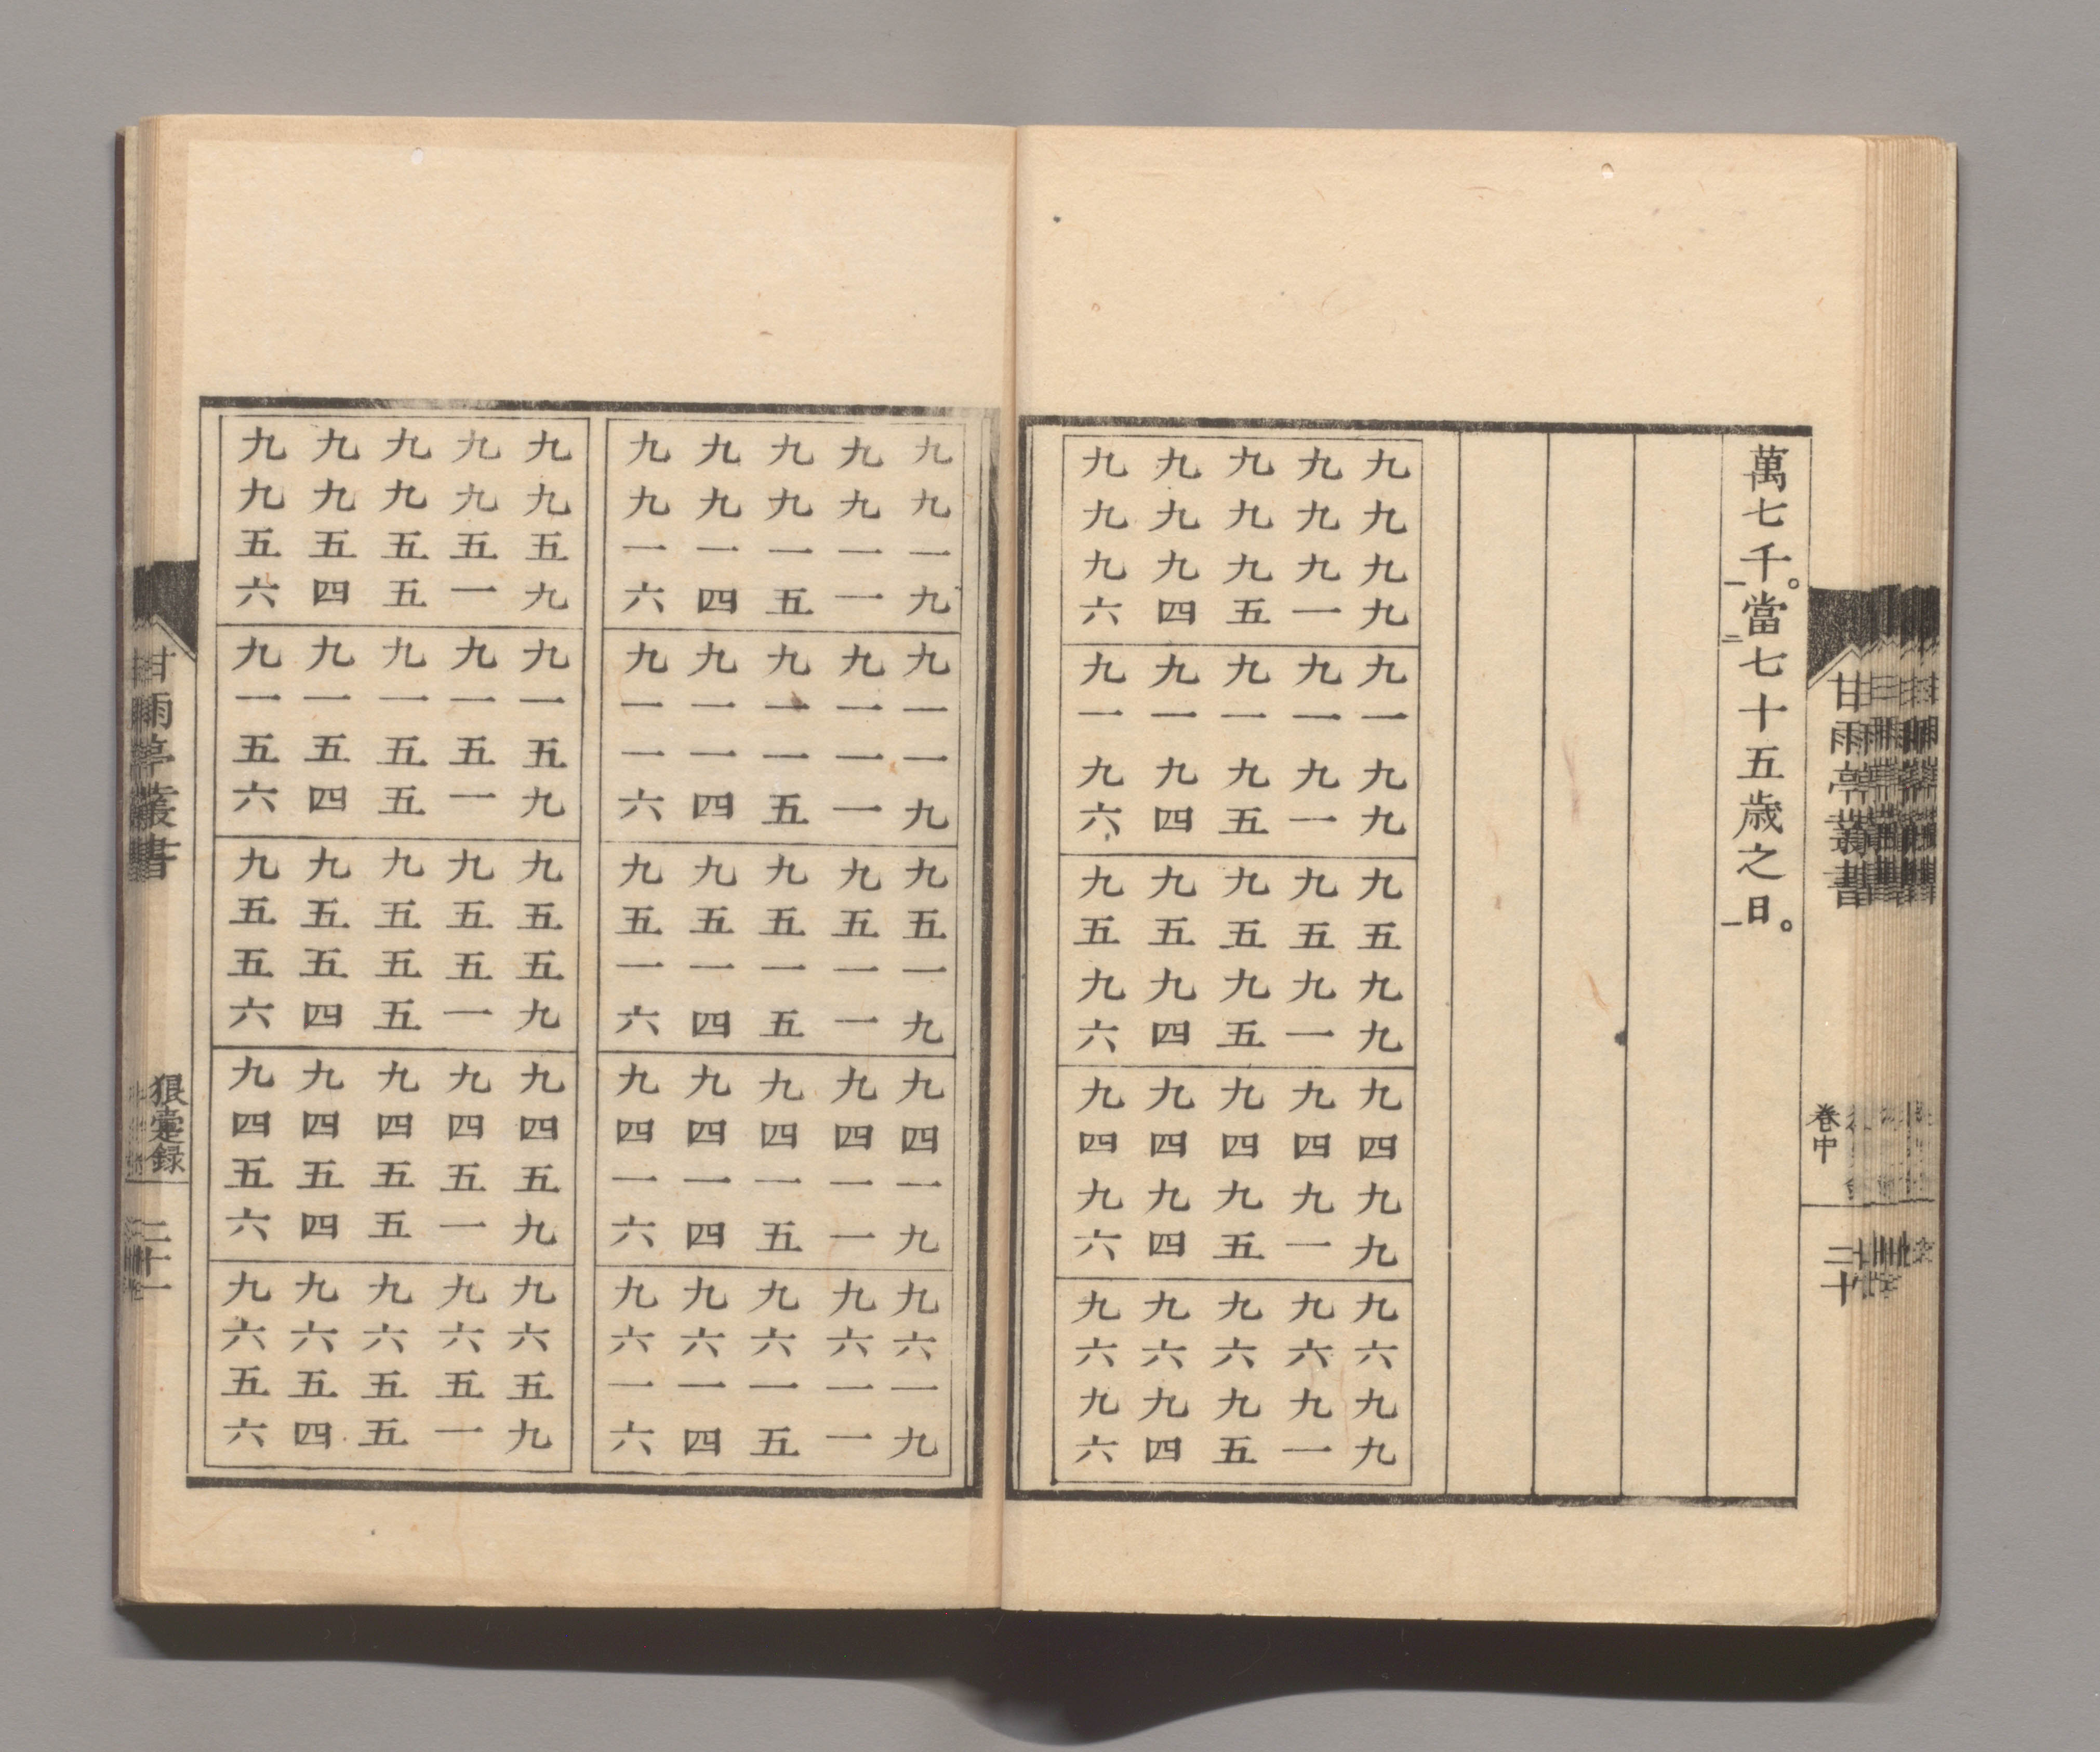 甘雨亭叢書 卷中 二十
萬七千。當七十五歳之日。
九九九九 九一九九 九五九九 九四九九 九六九九
九九九一 九一九一 九五九一 九四九一 九六九一
九九九五 九一九五 九五九五 九四九五 九六九五
九九九四 九一九四 九五九四 九四九四 九六九四
九九九六 九一九六 九五九六 九四九六 九六九六
九九一九 九一一九 九五一九 九四一九 九六一九
九九一一 九一一一 九五一一 九四一一 九六一一
九九一五 九一一五 九五一五 九四一五 九六一五
九九一四 九一一四 九五一四 九四一四 九六一四
九九一六 九一一六 九五一六 九四一六 九六一六
九九五九 九一五九 九五五九 九四五九 九六五九
九九五一 九一五一 九五五一 九四五一 九六五一
九九五五 九一五五 九五五五 九四五五 九六五五
九九五四 九一五四 九五五四 九四五四 九六五四
九九五六 九一五六 九五五六 九四五六 九六五六
甘雨亭叢書 狼疐録 二十一